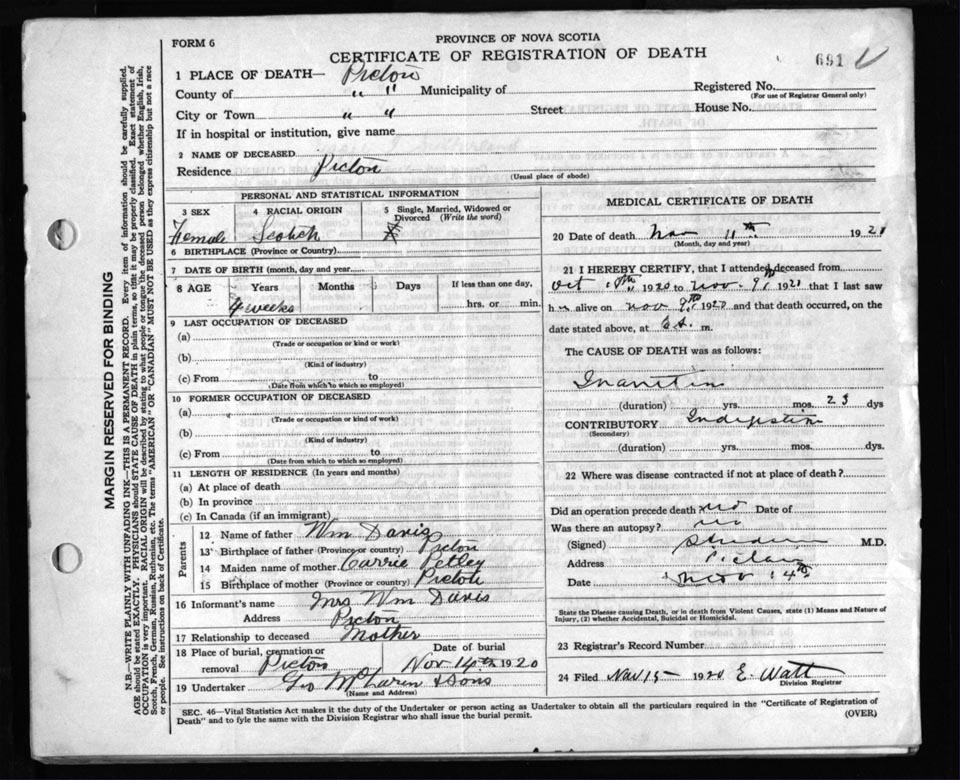 FORM 6
PROVINCE OF NOVA SCOTIA
CERTIFICATE OF REGISTRATION OF DEATH
691
1 PLACE OF DEATH— Pictou
County of " " Municipality of
Registered No.
(For use of Registrar General only)
City or Town " " Street
House No.
If in hospital or institution, give name
2 NAME OF DECEASED
Residence Pictou
(Usual place of abode)
PERSONAL AND STATISTICAL INFORMATION
3 SEX
4 RACIAL ORIGIN
5 Single, Married, Widowed or Divorced (Write the word)
Female Scotch
6 BIRTHPLACE (Province or Country)
7 DATE OF BIRTH (month, day and year
8 AGE
Years Months Days If less than one day,
4 weeks
hrs. or min.
9 LAST OCCUPATION OF DECEASED
(a)
(Trade or occupation or kind or work)
(b)
(Kind of industry)
(c) From to
(Date from which to which so employed)
10 FORMER OCCUPATION OF DECEASED
(a)
(Trade or occupation or kind of work)
(b)
(Kind of industry)
(c) From to
(Date from which to which so employed)
11 LENGTH OF RESIDENCE (In years and months)
(a) At place of death
(b) In province
(c) In Canada (if an immigrant)
Parents
12 Name of father Wm Davis
13 Birthplace of father (Province or country) Pictou
14 Maiden name of mother Carrie Pelley
15 Birthplace of mother (Province or country) Pictou
16 Informant's name Mrs Wm Davis
Address Pictou
17 Relationship to deceased Mother
18 Place of burial, cremation or removal Pictou
Date of burial
Nov 14th 1920
19 Undertaker Geo McLaren & Sons
(Name and Address)
MEDICAL CERTIFICATE OF DEATH
20 Date of death Nov 11th 192
(Month, day and year)
21 I HEREBY CERTIFY, that I attended deceased from
Oct 1920 to Nov. 9th 1920 that I last saw
h alive on Nov 9th 1920 and that death occurred, on the
date stated above, at m.
The CAUSE OF DEATH was as follows:
Inanition
(duration) yrs. mos. 23 dys
CONTRIBUTORY Indigestion
(Secondary)
(duration) yrs. mos. dys.
22 Where was disease contracted if not at place of death?
Did an operation precede death no Date of
Was there an autopsy? no
(Signed) M.D.
Address Pictou
Date Nov 14th
State the Disease causing Death, or in death from Violent Causes, state (1) Means and Nature of Injury, (2) whether Accidental, Suicidal or Homicidal.
23 Registrar's Record Number
24 Filed Nov 15 1920 E. Watt
Division Registrar
SEC. 46—Vital Statistics Act makes it the duty of the Undertaker or person acting as Undertaker to obtain all the particulars required in the "Certificate of Registration of
Death" and to fyle the same with the Division Registrar who shall issue the burial permit.
(OVER)
MARGIN RESERVED FOR BINDING
N.B.—WRITE PLAINLY WITH UNFADING INK—THIS IS A PERMANENT RECORD. Every item of information should be carefully supplied.
AGE should be stated EXACTLY. PHYSICIANS should STATE CAUSE OF DEATH in plain terms, so that it may be properly classified. Exact statement of
OCCUPATION is very important. RACIAL ORIGIN will be described by stating to what people or tongue the deceased person belonged whether English, Irish,
Scotch, French, German, Russian, Ruthenian, etc. The terms "AMERICAN" or "CANADIAN" MUST NOT BE USED as they express citizenship but not a race
or people. See instructions on back of Certificate.